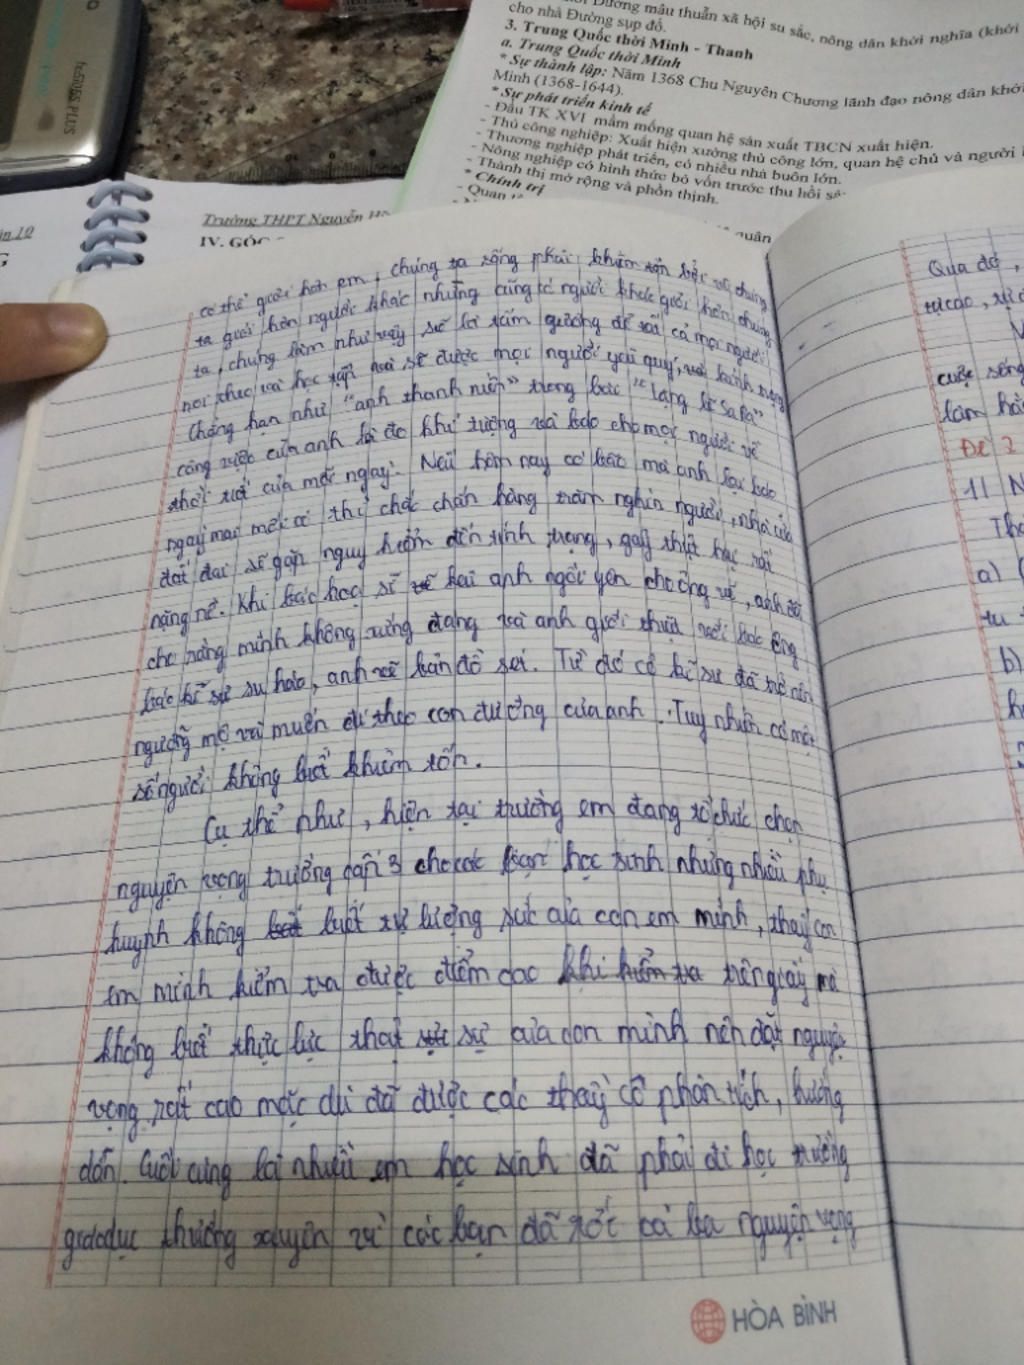 fx570ES PLUS
Đường mâu thuẫn xã hội su sắc, nông dân khởi nghĩa (khởi
cho nhà Đường sụp đổ.
3. Trung Quốc thời Minh - Thanh
a. Trung Quốc thời Minh
* Sự thành lập: Năm 1368 Chu Nguyên Chương lãnh đạo nông dân khởi
Minh (1368-1644).
* Sự phát triển kinh tế
- Đầu TK XVI mầm mống quan hệ sản xuất TBCN xuất hiện.
- Thủ công nghiệp: Xuất hiện xưởng thủ công lớn, quan hệ chủ và người
- Thương nghiệp phát triển, có nhiều nhà buôn lớn.
- Nông nghiệp có hình thức bỏ vốn trước thu hồi
- Thành thị mở rộng và phồn thịnh.
* Chính trị
- Quan
quân
Trường THPT Nguyễn
IV. GÓC
có thể giỏi hơn em, chúng ta sống phải khiêm tốn bởi vì chúng
ta giỏi hơn người khác nhưng cũng có người khác giỏi hơn chúng
ta, chúng làm như vậy sẽ là tấm gương để tất cả mọi người
noi theo và học tập và sẽ được mọi người yêu quý, và kính trọng
Chẳng hạn như "anh thanh niên" trong bài "Lặng lẽ SaPa"
công việc của anh là đo khí tượng và báo cho mọi người về
thời tiết của mỗi ngày. Nếu hôm nay có bão mà anh lại báo
ngày mai mới có thì chắc chắn hàng trăm nghìn người, nhà cửa
đất đai sẽ gặp nguy hiểm đến tính mạng, gây thiệt hại rất
nặng nề. Khi bác họa sĩ vẽ bài anh ngồi yên cho ông vẽ, anh đã
cho rằng mình không xứng đáng và anh giới thiệu với bác ông
bác kĩ sư su hào, anh vẽ bản đồ sét. Từ đó cô kĩ sư đã trở nên
ngưỡng mộ và muốn đi theo con đường của anh. Tuy nhiên có một
số người không biết khiêm tốn.
Cụ thể như, hiện tại trường em đang tổ chức chọn
nguyện vọng trường cấp 3 cho các bạn học sinh nhưng nhiều phụ
huynh không biết tự lượng sức của con em mình, thấy con
em mình kiểm tra được điểm cao khi kiểm tra trên giấy mà
không biết thực lực thật sự của con mình nên đặt nguyện
vọng rất cao mặc dù đã được các thầy cô phân tích, hướng
dẫn. Cuối cùng là nhiều em học sinh đã phải đi học trường
giáo dục thường xuyên vì các bạn đã rớt cả ba nguyện vọng
HÒA BÌNH
Qua đó,
tự cao, tự
cuộc sống
làm
Đề 2
1)
a)
b)